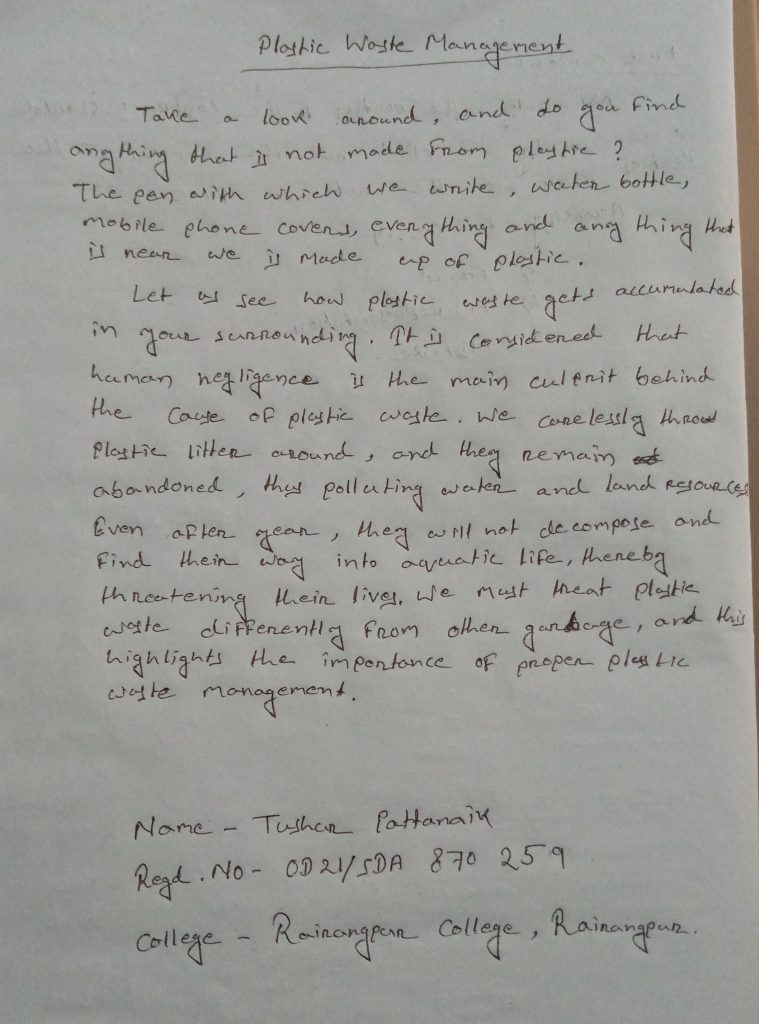 Plastic Waste Management
Take a look around, and do you find
anything that is not made from plastic ?
The pen with which we write, water bottle,
mobile phone covers, everything and any thing that
is near we is made up of plastic.
Let us see how plastic waste gets accumulated
in your surrounding. It is considered that
human negligence is the main culprit behind
the cause of plastic waste. We carelessly throw
plastic litter around, and they remain
abandoned, thus polluting water and land resources
Even after year, they will not decompose and
find their way into aquatic life, thereby
threatening their lives. We must treat plastic
waste differently from other garbage, and this
highlights the importance of proper plastic
waste management.
Name - Tushar Pattanaik
Regd. No - OD21/SDA 870 259
College - Rairangpur College, Rairangpur.